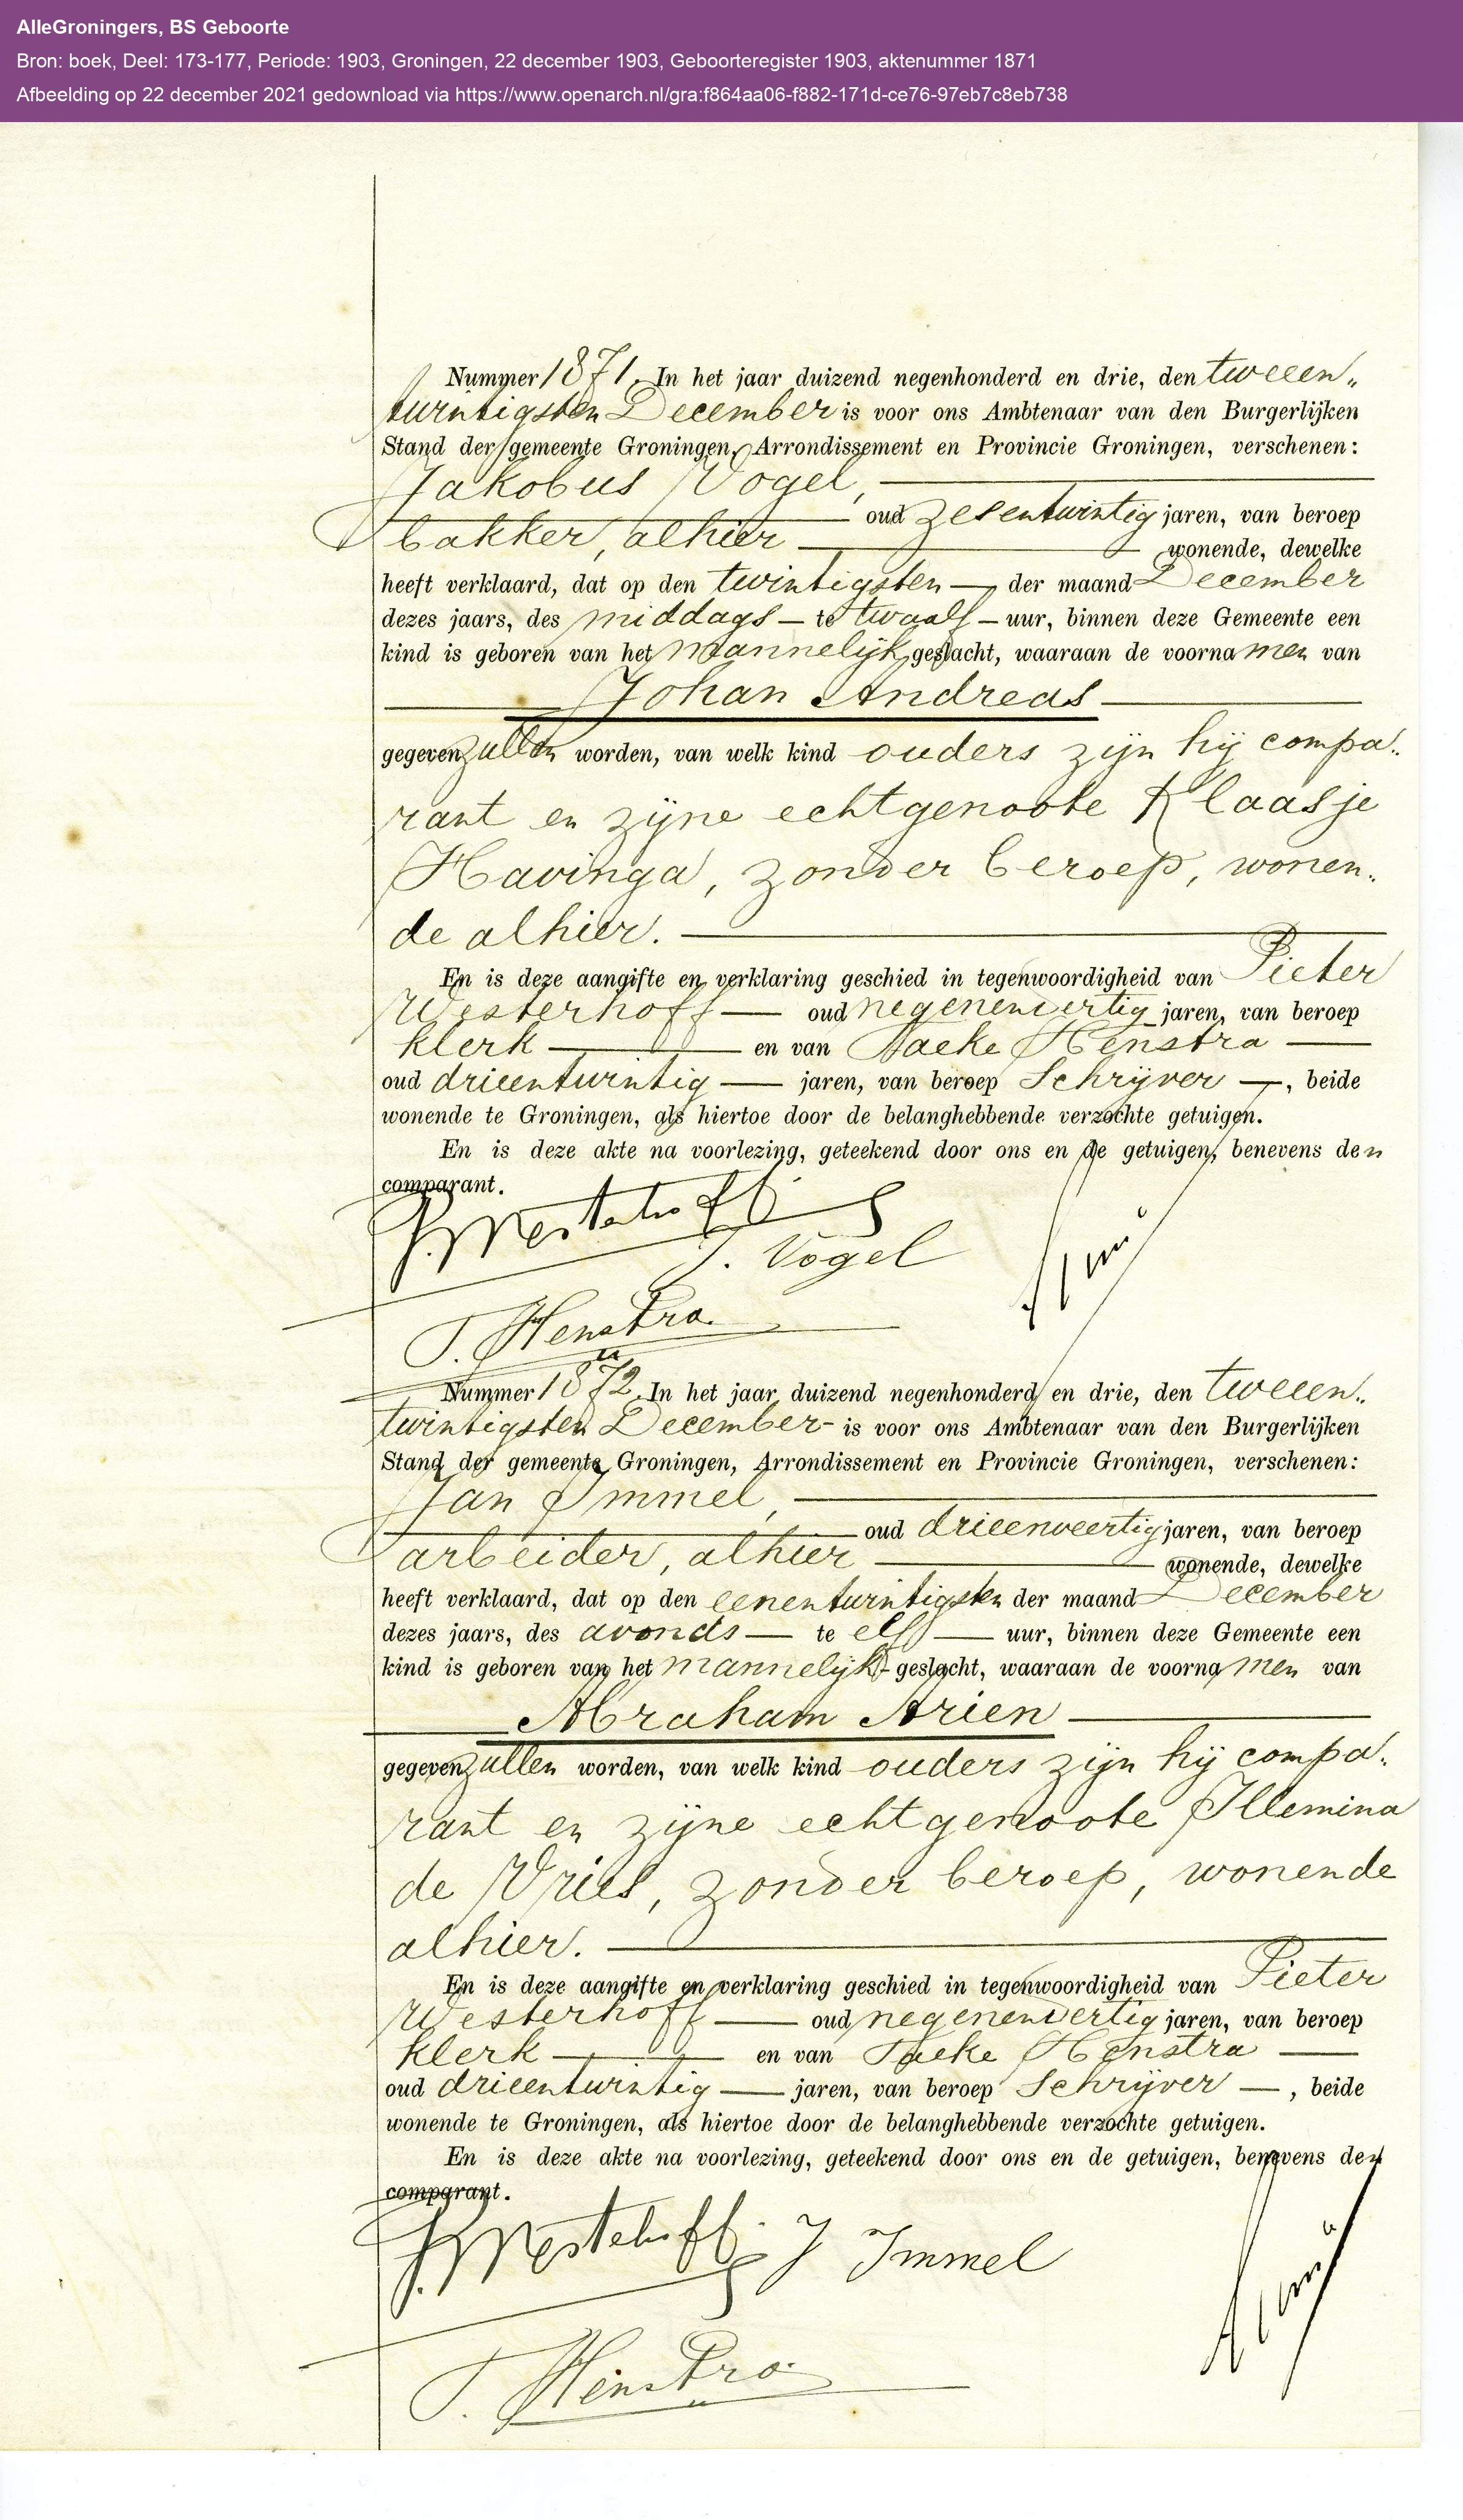 AlleGroningers, BS Geboorte
Bron: boek, Deel: 173-177, Periode: 1903, Groningen, 22 december 1903, Geboorteregister 1903, aktenummer 1871
Afbeelding op 22 december 2021 gedownload via https://www.openarch.nl/gra:f864aa06-f882-171d-ce76-97eb7c8eb738
Nummer 1871. In het jaar duizend negenhonderd en drie, den tweeen„
twintigsten December is voor ons Ambtenaar van den Burgerlijken
Stand der gemeente Groningen, Arrondissement en Provincie Groningen, verschenen:
Jakobus Vogel,
oud zesentwintig jaren, van beroep
bakker, alhier wonende, dewelke
heeft verklaard, dat op den twintigsten — der maand December
dezes jaars, des middags — te twaalf — uur, binnen deze Gemeente een
kind is geboren van het mannelijk geslacht, waaraan de voornamen van
Johan Andreas
gegeven zullen worden, van welk kind ouders zijn hij compa„
rant en zijne echtgenoote Klaasje
Havinga, zonder beroep, wonen„
de alhier.
En is deze aangifte en verklaring geschied in tegenwoordigheid van Pieter
Westerhoff — oud negenenveertig jaren, van beroep
klerk — en van Taeke Henstra —
oud drieentwintig — jaren, van beroep Schrijver —, beide
wonende te Groningen, als hiertoe door de belanghebbende verzochte getuigen.
En is deze akte na voorlezing, geteekend door ons en de getuigen, benevens den
comparant.
P. Westerhoff
J. Vogel
T. Henstra
Nummer 1872. In het jaar duizend negenhonderd en drie, den tweeen„
twintigsten December - is voor ons Ambtenaar van den Burgerlijken
Stand der gemeente Groningen, Arrondissement en Provincie Groningen, verschenen:
Jan Immel,
oud drieenveertig jaren, van beroep
arbeider, alhier wonende, dewelke
heeft verklaard, dat op den eenentwintigsten der maand December
dezes jaars, des avonds — te elf — uur, binnen deze Gemeente een
kind is geboren van het mannelijk - geslacht, waaraan de voornamen van
Abraham Arien
gegeven zullen worden, van welk kind ouders zijn hij compa„
rant en zijne echtgenoote Illemina
de Vries, zonder beroep, wonende
alhier.
En is deze aangifte en verklaring geschied in tegenwoordigheid van Pieter
Westerhoff — oud negenenveertig jaren, van beroep
klerk — en van Taeke Henstra —
oud drieentwintig — jaren, van beroep Schrijver —, beide
wonende te Groningen, als hiertoe door de belanghebbende verzochte getuigen.
En is deze akte na voorlezing, geteekend door ons en de getuigen, benevens den
comparant.
P. Westerhoff
J Immel
T. Henstra